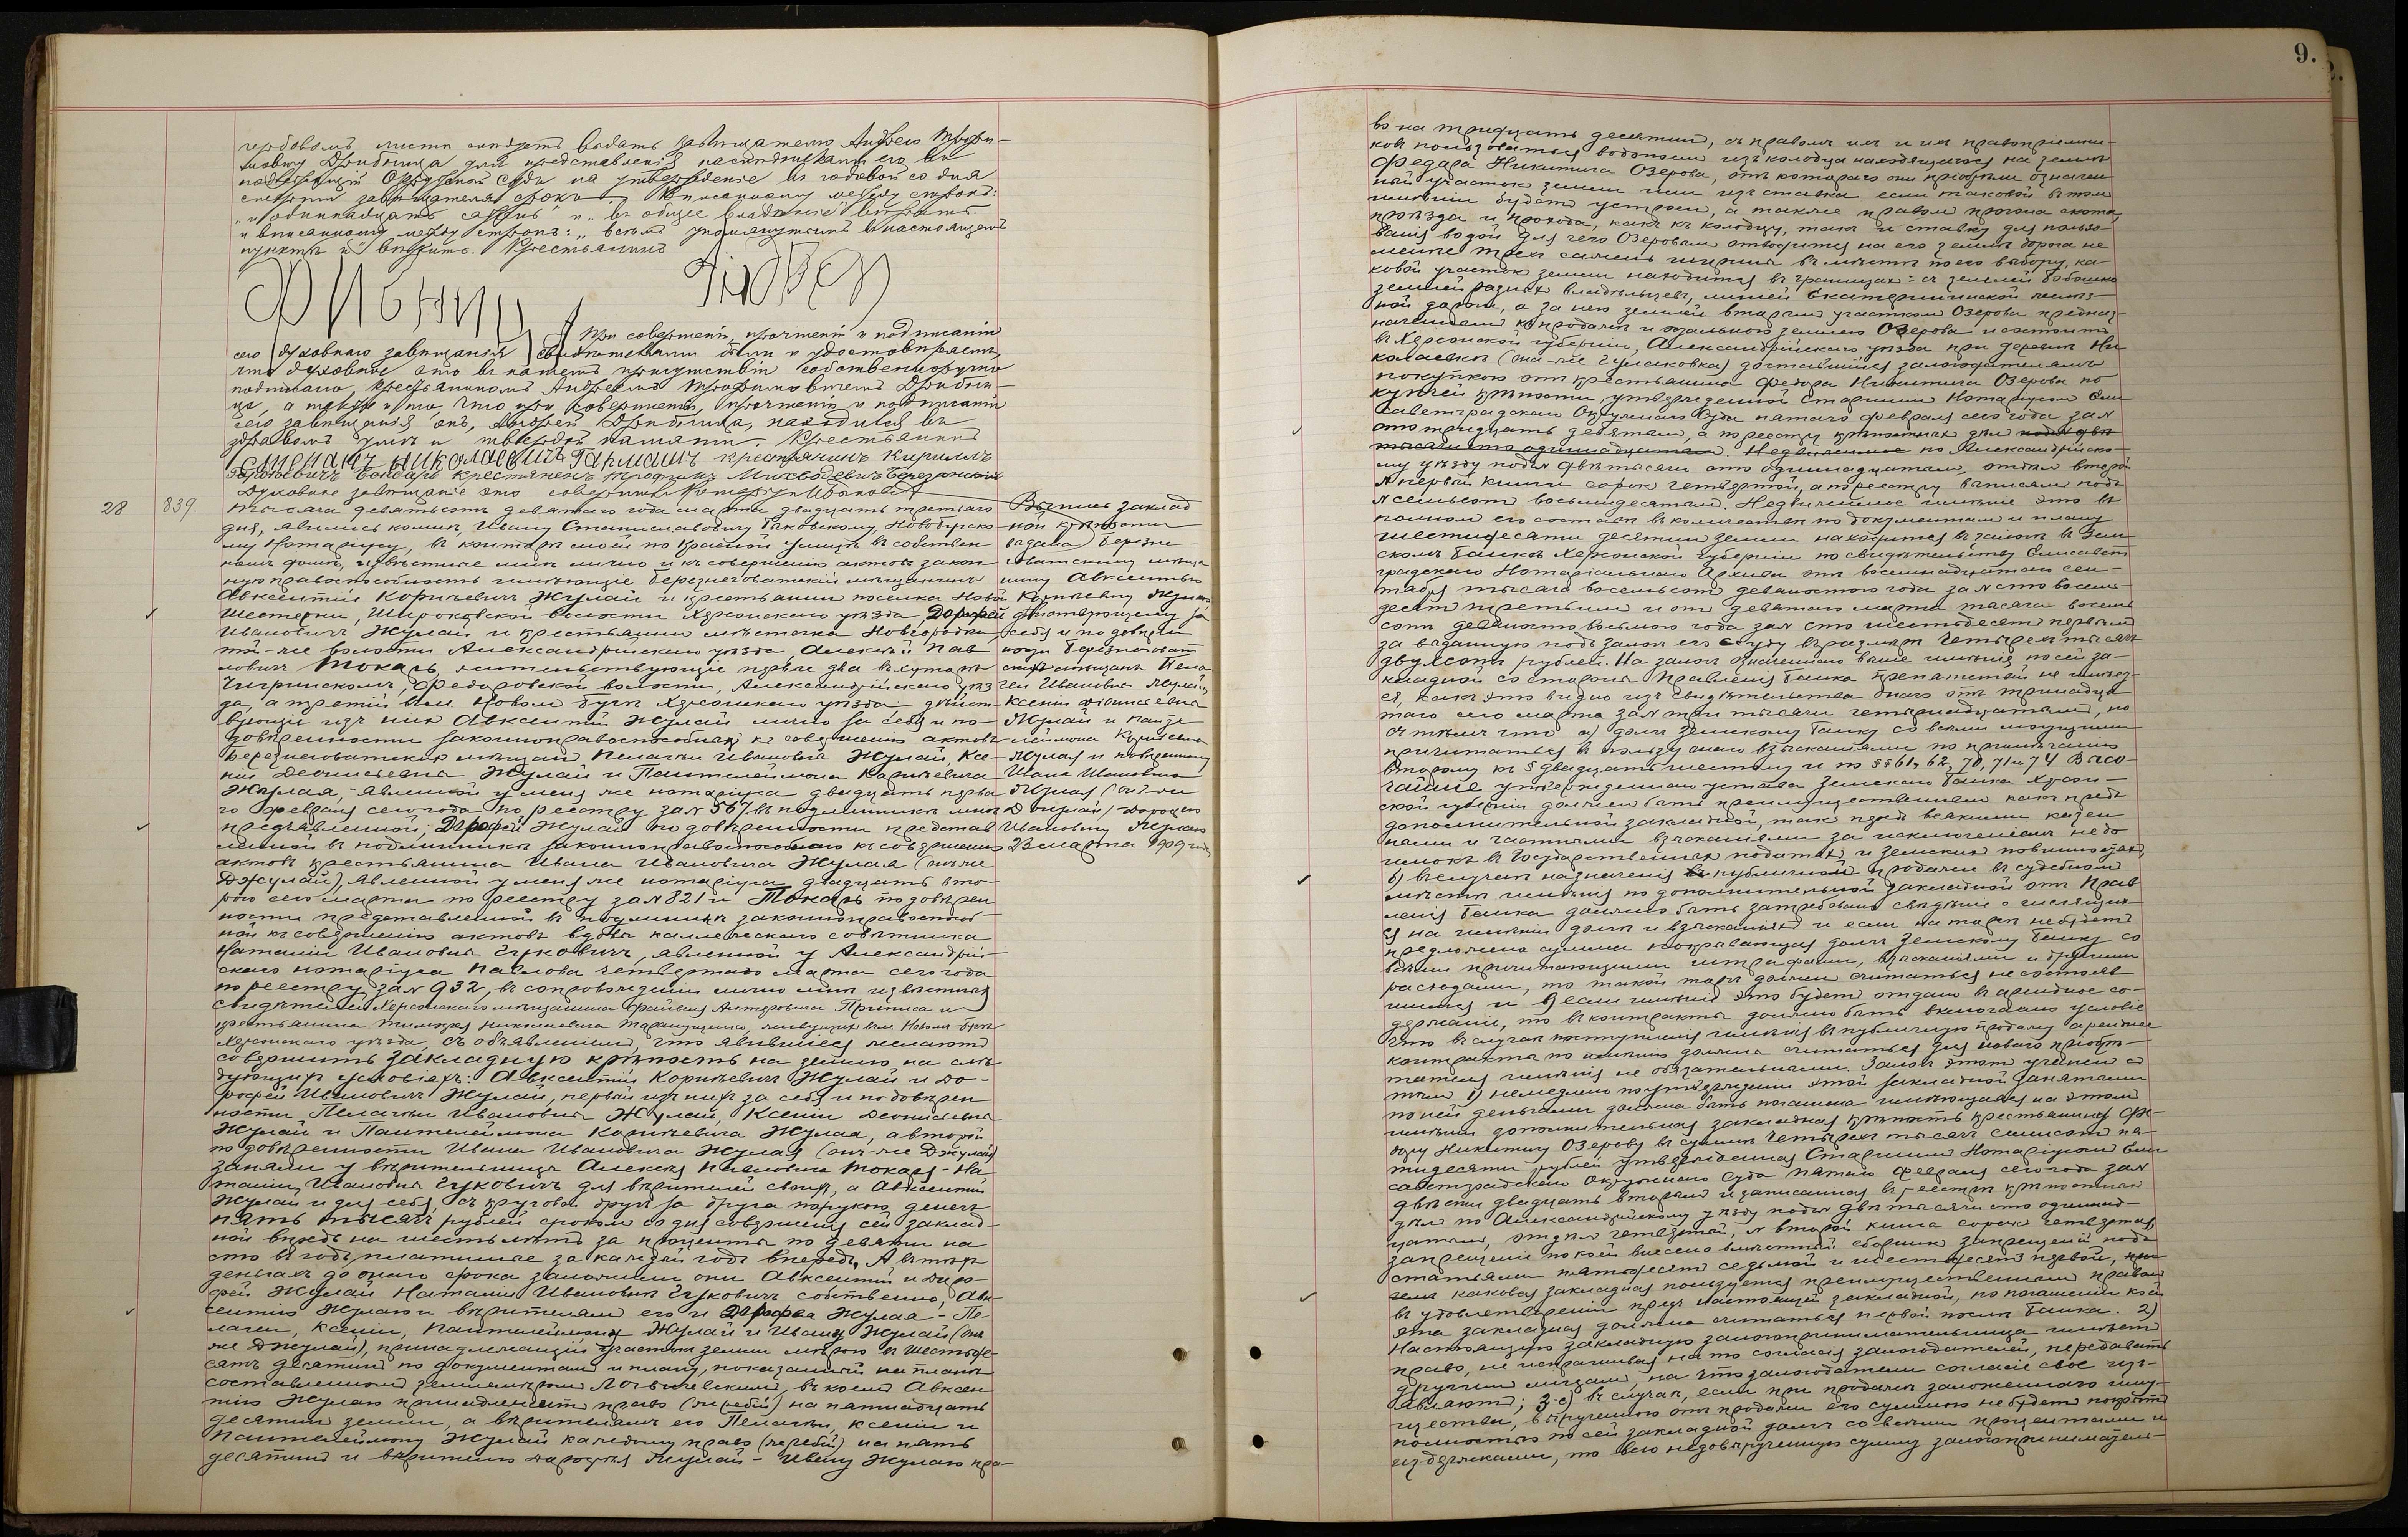 гербовомъ листѣ слѣдуетъ выдать завѣщателю Андрею Трофи-
мовичу Дрибница для представленія наслѣдниками его въ
надлежащій Окружной Судъ на утвержденіе въ годовой со дня
смерти завѣщателя срокъ. Вписанному между строкъ:
"и одиннадцать саженъ" и "въ общее владѣніе" вѣрить.
и вписанному между строкъ: "всѣмъ упомянутымъ въ настоящемъ
пунктѣ" и вѣрить. Крестьянинъ
Андрей
При совершеніи, прочтеніи и подписаніи
сего духовнаго завѣщанія свидѣтелями были и удостовѣряемъ,
что духовное это въ нашемъ присутствіи собственноручно
подписано, крестьяниномъ Андреемъ Трофимовичемъ Дрибни-
ца, а также и то, что при совершеніи, прочтеніи и подписаніи
сего завѣщанія онъ, Андрей Дрибница, находился въ
здравомъ умѣ и твердой памяти. Крестьянинъ
Николаевичъ Гармашъ крестьянинъ Кирилъ
Бондарь крестьянинъ Трофимъ Березанскій
Духовное завѣщаніе это совершилъ Нотаріусъ
28
839.
Тысяча девятьсотъ девятаго года марта двадцать третьяго
дня, явились ко мнѣ, Ивану Станиславовичу Быковскому, Новобугско-
му Нотаріусу, въ контору мою по Красной улицѣ въ собствен
номъ домѣ, извѣстные мнѣ лично и къ совершенію актовъ закон-
ную правоспособность имѣющіе Березнеговатскій мѣщанинъ
Авксентій Корнѣевичъ Жулай и крестьянинъ поселка Новой
Шестерни, Широковской волости Херсонскаго уѣзда, Дорофей
Ивановичъ Жулай и крестьянинъ мѣстечка Новгородки
той-же волости Александрійскаго уѣзда, Алексѣй Пав
ловичъ Токарь, жительствующіе первые два въ хуторѣ
Чигринскомъ, Федоровской волости, Александрійскаго уѣз
да, а третій въ м. Новомъ Бугѣ Херсонскаго уѣзда дѣйст-
вующіе изъ нихъ Авксентій Жулай лично за себя и по-
довѣренности законноправоспособныхъ къ совершенію актовъ
Березнеговатскихъ мѣщанъ Пелагеи Ивановны Жулай, Ксе-
ніи Деонисьевны Жулай и Пантелеймона Корнѣевича
Жулая, - явленной у меня же нотаріуса двадцать перва
го февраля сего года по реестру за N 567 въ подлинникѣ мнѣ
предъявленной; Дорофей Жулай по довѣренности представ
ленной въ подлинникѣ законноправоспособнаго къ совершенію
актовъ крестьянина Ивана Ивановича Жулая (онъ-же
Джулай), явленной у меня же нотаріуса двадцать вто-
рого сего марта по реестру за N 821 и Токарь по довѣрен
ности представленной въ подлинникѣ законноправоспособ
ной къ совершенію актовъ вдовы коллежскаго совѣтника
Наталіи Ивановны Чуковичъ, явленной у Александрій-
скаго нотаріуса Павлова четвертаго марта сего года
по реестру за N 932, въ сопровожденіи лично мнѣ извѣстныхъ
свидѣтелей Херсонскаго мѣщанина Файвеля Приписа и
крестьянина Николаевича Таранущенко, живущихъ въ м. Новомъ Бугѣ
Херсонскаго уѣзда, съ объявленіемъ, что явившіеся желаютъ
совершить закладную крѣпость на землю на слѣ
дующихъ условіяхъ: Авксентій Корнѣевичъ Жулай и До-
рофей Ивановичъ Жулай, первый изъ нихъ за себя и по довѣрен
ности Пелагеи Ивановны Жулай, Ксеніи Деонисьевны
Жулай и Пантелеймона Корнѣевича Жулая, а второй
по довѣренности Ивана Ивановича Жулая (онъ-же Джулай)
заняли у вѣрительницы Алексѣя Павловича Токаря - На-
таліи Ивановны Чуковичъ для вѣрителей своихъ, а Авксентій
Жулай и для себя, съ круговою другъ за друга порукою, денегъ
пять тысячъ рублей срокомъ со дня совершенія сей заклад-
ной впредь на шесть лѣтъ за проценты по девяти на
сто въ годъ, платимые за каждый годъ впередъ. А въ тѣхъ
деньгахъ до онаго срока заложили они Авксентій и Доро-
фей Жулай Наталіи Ивановнѣ Чуковичъ собственно, Авк-
сентію Жулаю и вѣрителямъ его и Дорофея Жулая - Пе-
лагеи, Ксеніи, Пантелеймону Жулай и Ивану Жулай (онъ
же Джулай), принадлежащій участокъ земли мѣрою въ шестьде-
сятъ десятинъ по документамъ и плану, показанный на планѣ
составленномъ землемѣромъ Логвиневскимъ, въ коемъ Авксен
тію Жулаю принадлежитъ право (жребій) на пятнадцать
десятинъ земли, а вѣрителямъ его Пелагеи, Ксеніи и
Пантелеймону Жулай каждому право (жребій) на пять
десятинъ и вѣрителю Дорофея Жулай - Ивану Жулаю пра-
Выпись заклад
ной крѣпости
выдана Березне-
говатскому мѣща
нину Авксентію
Корнѣевичу Жулаю
дѣйствующему за
себя и по довѣрен
ности Березнеговат
скихъ мѣщанъ Пела
геи Ивановны Жулай,
Ксеніи Діонисьевны
Жулай и Панте
леймона Корнѣевича
Жулая и повѣренному
Ивана Ивановича
Жулая (онъ-же
Джулай) Дорофею
Ивановичу Жулаю
23 марта 1909 года
9.
во на тридцать десятинъ, съ правомъ ихъ и ихъ правопріемни-
ковъ пользоваться водопоемъ изъ колодца находящагося на землѣ
Федора Никитича Озерова, отъ котораго они пріобрѣли означен
ный участокъ земли или изъ ставка если таковой въ томъ
имѣніи будетъ устроенъ, а также правомъ прогона скота,
проѣзда и прохода, какъ къ колодцу, такъ и ставку для пользо-
ванія водой для чего Озеровымъ отводится на его землѣ дорога не
менѣе трехъ саженъ ширины въ мѣстѣ по его выбору, ка-
ковой участокъ земли находится въ границахъ: съ землей
землей разныхъ владѣльцевъ, линіей Екатерининской желѣз-
ной дороги, а за нею землей вторымъ участкомъ Озерова предназ-
наченнымъ къ продажѣ и остальною землею Озерова и состоитъ
въ Херсонской губерніи, Александрійскаго уѣзда при деревнѣ Ни
колаевкѣ (она-же Гусаковка) доставшійся залогодателямъ
покупкою отъ крестьянина Федора Никитича Озерова по
купчей крѣпости, утвержденной Старшимъ Нотаріусомъ Ели
саветградскаго Окружнаго Суда пятаго февраля сего года за N
сто тридцать девятымъ, а по реестру крѣпостныхъ дѣлъ
по Александрійско-
му уѣзду подъ N двѣ тысячи сто одиннадцатымъ, отдѣлъ второй
N первый книги сорокъ четвертой, а по реестру вписанъ подъ
N семьсотъ восемьдесятымъ. Недвижимое имѣніе это въ
полномъ его составѣ въ количествѣ по документамъ и плану
шестидесяти десятинъ земли находится въ залогѣ въ Зем
скомъ Банкѣ Херсонской Губерніи по свидѣтельству Елисавет
градскаго Нотаріальнаго Архива отъ восемнадцатаго сен-
тября тысяча восемьсотъ девяностаго года за N сто восемь-
десятъ третьимъ и отъ девятаго марта тысяча восемь
сотъ девяносто восьмого года за N сто шестьдесятъ первымъ
за выданную подъ залогъ его ссуду въ размѣрѣ четырехъ тысячъ
двухсотъ рублей. На залогъ означеннаго выше имѣнія по сей за-
кладной со стороны Правленія Банка препятствій не имѣет-
ся, какъ это видно изъ свидѣтельства онаго отъ тринадца
таго сего марта за N три тысячи четырнадцатымъ, но
съ тѣмъ что а) долгъ Земскому Банку со всѣми могущими
причитаться въ пользу онаго взысканіями по примѣчанію
второму къ § двадцать шестому и по §§ 61, 62, 70, 71 и 74 Высо-
чайше утвержденнаго устава Земскаго Банка Херсон-
ской губерніи долженъ быть преимущественнымъ какъ предъ
дополнительной закладной, такъ предъ всякими казен
ными и частными взысканіями за исключеніемъ недо
имокъ въ Государственныхъ податяхъ и земскихъ повинностяхъ,
б) въ случаѣ назначенія публичной продажи въ судебномъ
мѣстѣ имѣнія по дополнительной закладной отъ Прав
ленія Банка должно быть затребовано свѣдѣніе о числящих-
ся на имѣніи долгѣ и взысканіяхъ и если на торгѣ не будетъ
предложена сумма покрывающая долгъ Земскому Банку со
всѣми причитающимися штрафами, взысканіями и другими
расходами, то такой торгъ долженъ считаться не состояв
шимся и в) если имѣніе это будетъ отдано въ арендное со-
держаніе, то въ контракты должно быть включаемо условіе
что въ случаѣ поступленія имѣнія въ публичную продажу арендные
контракты по имѣнію должны считаться для новаго пріобрѣ-
тателя имѣнія не обязательными. Залогъ этотъ учиненъ съ
тѣмъ 1) немедленно по утвержденіи этой закладной занятыми
по ней деньгами должна быть погашена имѣющаяся на этомъ
имѣніи дополнительная закладная крѣпость крестьянину Фе-
дору Никитичу Озерову въ суммѣ четырехъ тысячъ семисотъ пя-
тидесяти рублей утвержденная Старшимъ Нотаріусомъ Ели
саветградскаго Окружнаго Суда пятаго февраля сего года за N
двѣсти двадцать вторымъ и записанная въ реестрѣ крѣпостныхъ
дѣлъ по Александрійскому уѣзду подъ N двѣ тысячи сто одиннад-
цатымъ, отдѣлъ четвертый, N второй книга сорокъ четвертая,
запрещеніе по коей внесено въ мѣстный сборникъ запрещеній подъ
статьями пятьдесятъ седьмой и шестьдесятъ первой, при
чемъ каковая закладная пользуется преимущественнымъ правомъ
въ удовлетвореніи предъ настоящей закладной, по погашеніи коей
эта закладная должна считаться первой послѣ Банка. 2)
Настоящую закладную залогопринимательница имѣетъ
право, не испрашивая на то согласія залогодателей, передавать
другимъ лицамъ, на что залогодатели согласіе свое изъ-
являютъ; 3-е) въ случаѣ, если при продажѣ заложеннаго иму-
щества, вырученною отъ продажи его суммою не будетъ покрытъ
полностью по сей закладной долгъ со всѣми процентами и
издержками, то всю недовырученную сумму залогопринимател-